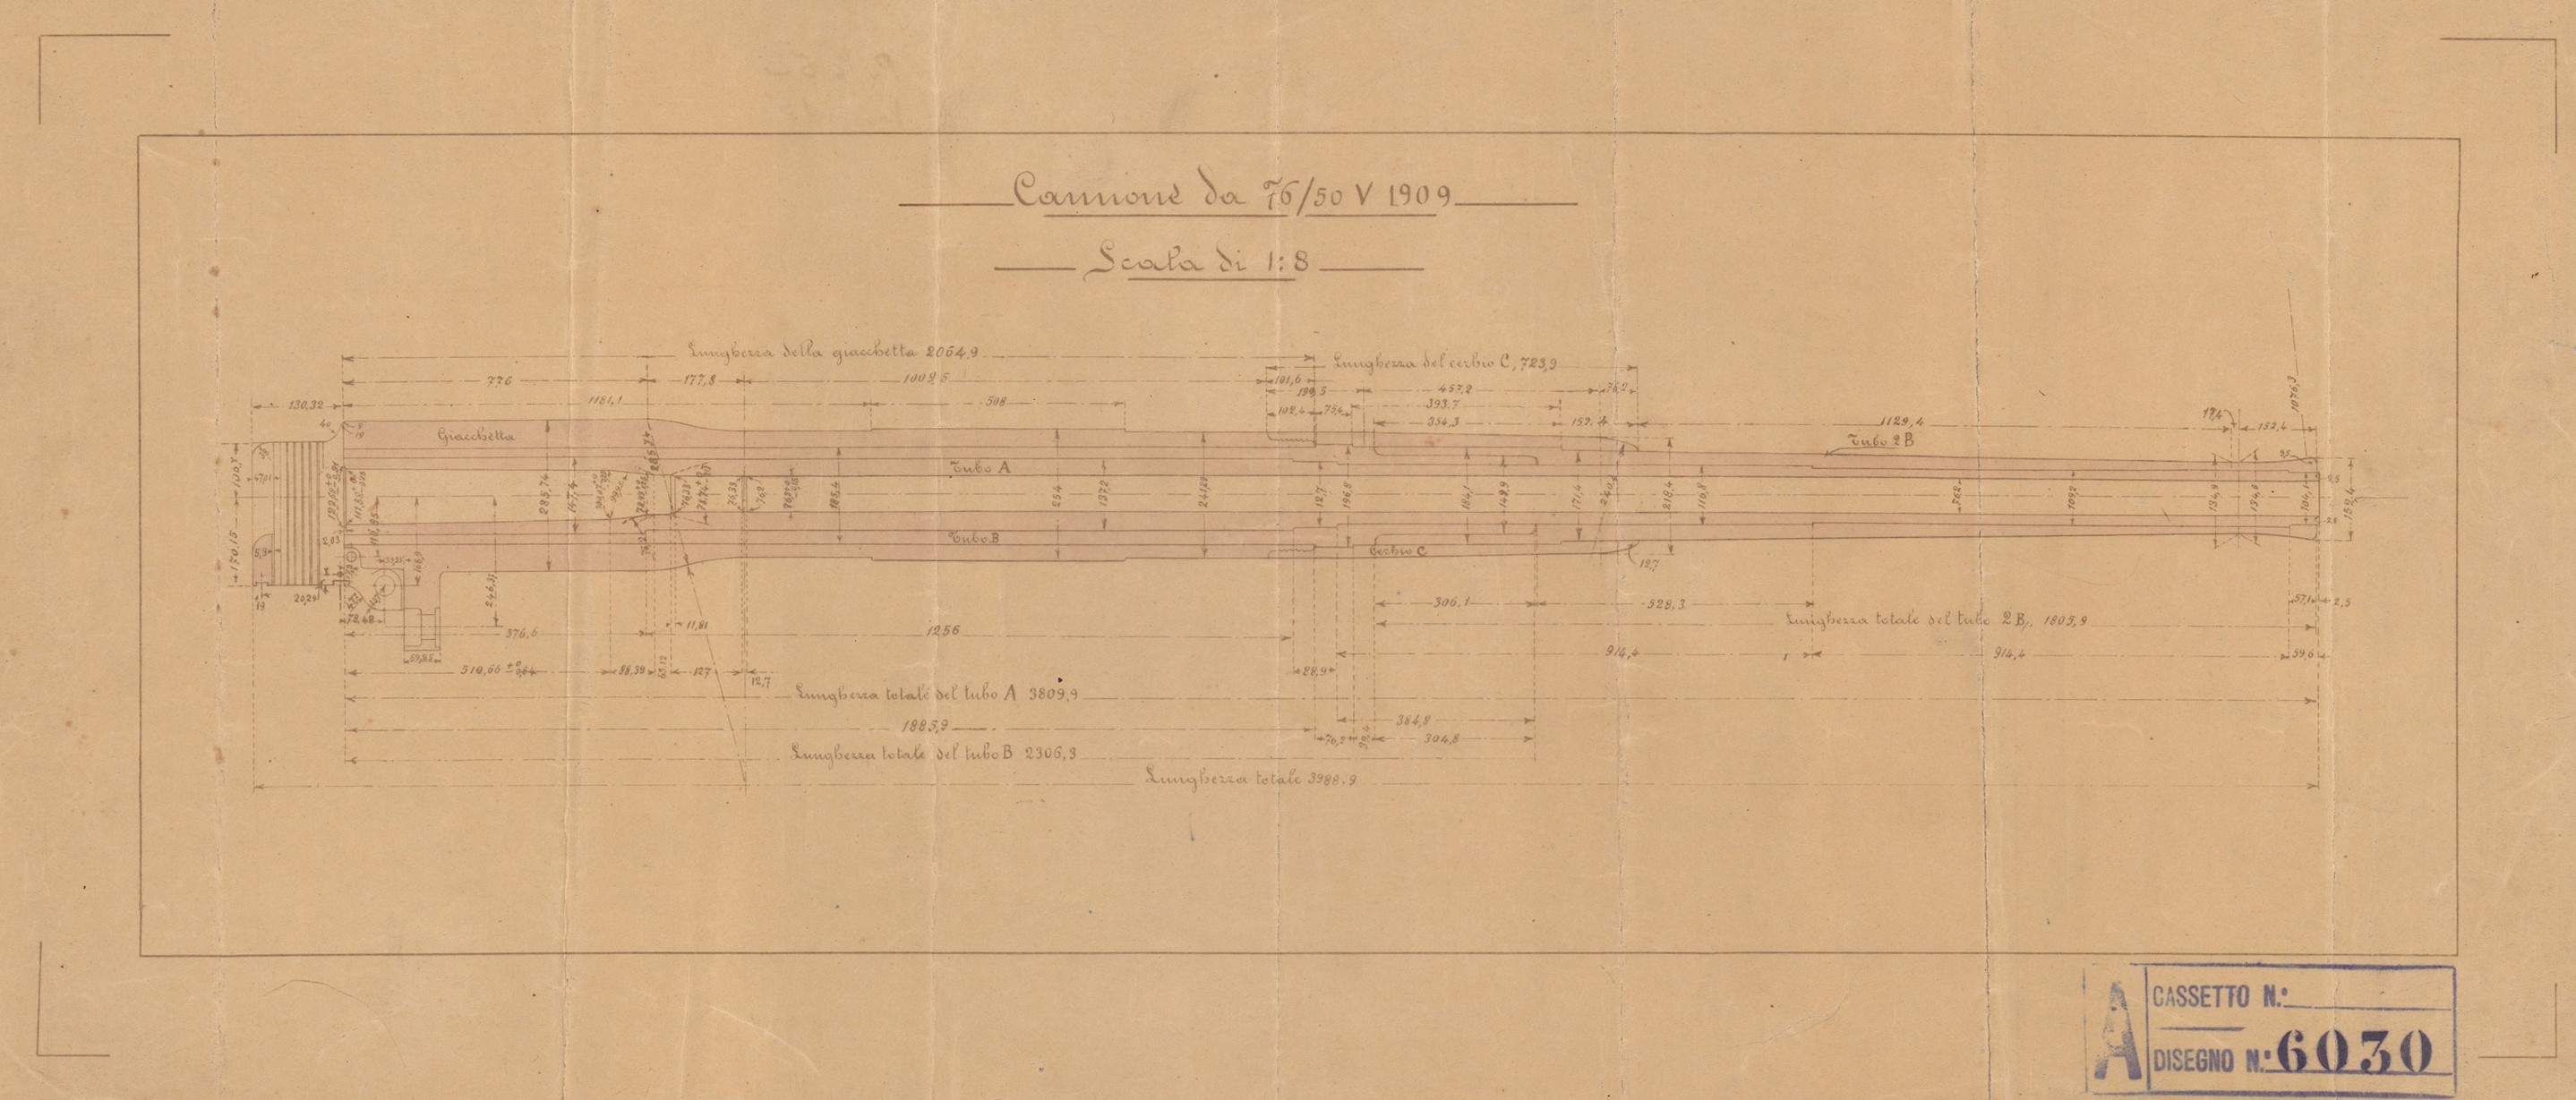 Cannone da 76/50 V 1909
Scala di 1:8
Lunghezza della giacchetta 2064,9
Lunghezza del cerbio C, 723,9
776
177,8
1009,5
101,6
457,2
76,2
130,32
1181,1
508
102,4
75,4
393,7
354,3
152,4
1129,4
17,4
152,4
1076,3
Giacchetta
Tubo 2B
Tubo A
110,7
47,01
285,74
147,4
254
137,2
12,7
196,8
184,1
149,9
171,4
218,4
116,8
76,2
109,2
134,9
104,1
152,4
170,15
Tubo B
Cerbio C
12,7
20,29
19
246,11
69,85
376,6
11,81
1256
306,1
528,3
57,1
2,5
Lunghezza totale del tubo 2B, 1805,9
510,66
88,39
127
12,7
88,9
914,4
914,4
59,6
Lunghezza totale del tubo A 3809,9
1885,9
384,8
304,8
Lunghezza totale del tubo B 2306,3
Lunghezza totale 3988,9
A
CASSETTO N.º
DISEGNO N.º 6030